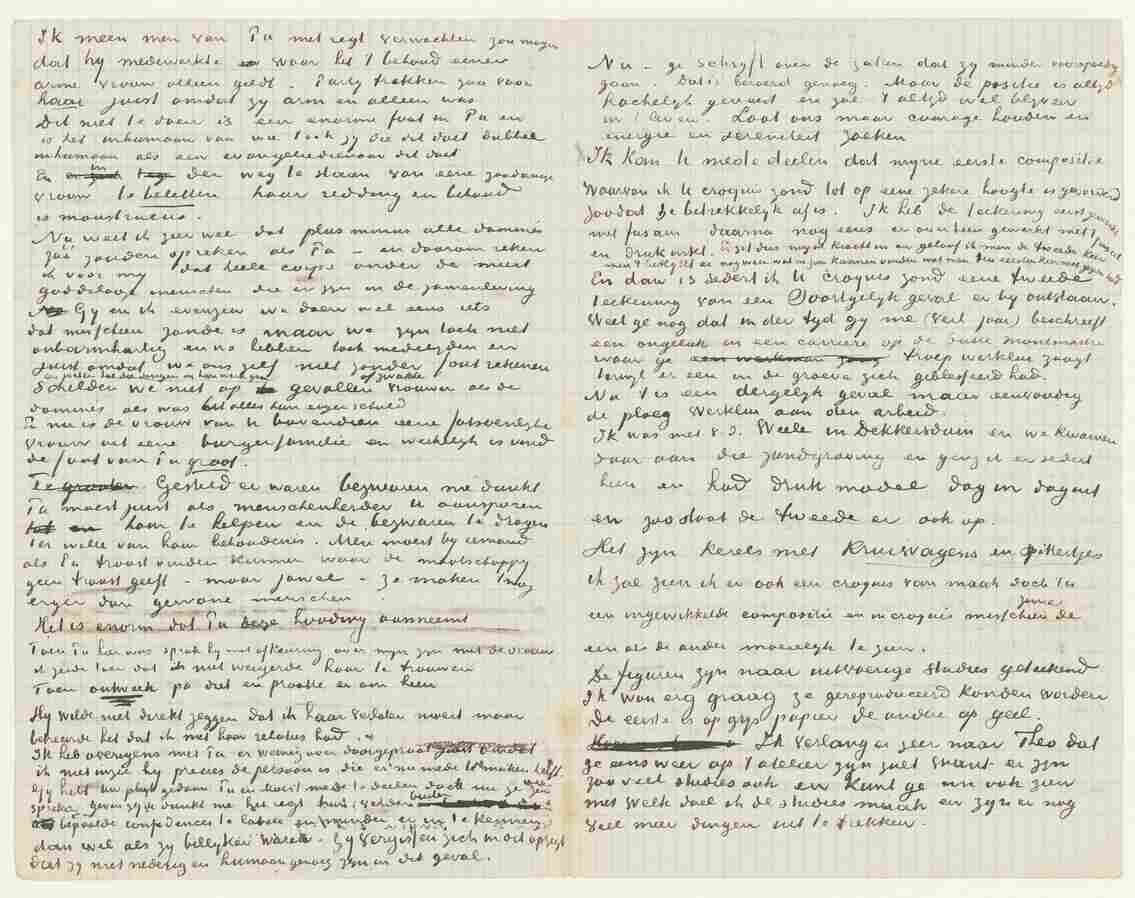 Ik meen men van Pa met regt verwachten zou mogen
dat hy medewerkte waar het 't behoud eener
arme vrouw alleen geldt. Party trekken zou voor
haar juist omdat zy arm en alleen was
Dit niet te doen is een enorme fout in Pa en
is het inhumaan van wie toch zy die dit doet dubbel
inhumaan als een evangeliedienaar dit doet
En in den weg te staan van eene zoodanige
vrouw te beletten haar redding en behoud
is monstrueus.
Nu weet ik zeer wel dat plus minus alle dominés
zóó zouden spreken als Pa – en daarom reken
ik voor my dat heele corps onder de meest
goddelooze menschen die er zyn in de zamenleving
Gy en ik evenzeer we doen wel eens iets
dat misschien zonde is maar we zyn toch niet
onbarmhartig en we hebben toch medelyden en
juist omdat we ons zelf niet zonder fout rekenen
en juist weten hoe dingen in hun werk gaan
schelden we niet op gevallen of zwakke vrouwen als de
dominés als was het alles hun eigen schuld
En nu is de vrouw van U bovendien eene fatsoenlyke
vrouw uit eene burgerfamilie en werkelyk is vind
de fout van Pa groot.
Gesteld er waren bezwaren me dunkt
Pa moest juist als menschenherder U aansporen
haar te helpen en de bezwaren te dragen
ter wille van haar behoudenis. Men moest by iemand
als Pa troost vinden kunnen waar de maatschappy
geen troost geeft – maar jawel – ze maken 't nog
erger dan gewone menschen.
Het is enorm dat Pa deze houding aanneemt
Toen Pa hier was sprak hy met afkeuring over myn zyn met de vrouw
ik zeide toen dat ik niet weigerde haar te trouwen
Toen ontweek pa dat en praatte er om heen
Hy wilde niet direkt zeggen dat ik haar verlaten moest maar
betreurde het dat ik met haar relaties had.
Ik heb overigens met Pa er weinig over doorgepraat
ik niet inzie hy precies de persoon is die er nu mede te maken heeft.
Gy hebt uw pligt gedaan Pa en Moe er mede te deelen doch nu ze
spreken geven zy je dunkt me het regt hun verder buiten
bepaalde confidences te laten en minder er in te kennen
dan wel als zy billyker waren. Zy vergissen zich in dat opzigt
dat zy niet nederig en humaan genoeg zyn in dit geval.
Nu – ge schryft over de zaken dat zy minder voorspoedig
gaan. Dat is beroerd genoeg. Maar de positie is altyd
hachelyk geweest en zal 't altyd wel blyven
in 't leven. Laat ons maar courage houden en
energie en sereniteit zoeken
Ik kan U mede deelen dat myne eerste compositie
waarvan ik U croquis zond tot op eene zekere hoogte is gevorderd
zoodat ze betrekkelyk af is. Ik heb de teekening eerst gemaakt
met fusain daarna nog eens er overheen gewerkt met penseel
en drukinkt. Er zit dus myns inziens kracht in en geloof ik men de tweede keer
men 't bekykt er nog weer wat in zou kunnen vinden wat men den eersten keer niet gezien had
En dan is sedert ik U croquis zond eene tweede
teekening van een soortgelyk geval er by ontstaan.
Weet ge nog dat in der tyd gy me (verl jaar) beschreeft
een ongeluk in een carrière op de butte Montmartre
waar ge troep werklui zaagt
terwyl er een in de groeve zich geblesseerd had.
Nu 't is een dergelyk geval maar eenvoudig
de ploeg werklui aan den arbeid.
Ik was met v.d. Weele in Dekkersduin en we kwamen
daar aan die zandgraving en ging ik er sedert
heen en had druk model dag in dag uit
en zoo staat de tweede er ook op.
Het zyn kerels met kruiwagens en spitters
Ik zal zien ik er ook een croquis van maak doch 't is
een ingewikkelde compositie en in croquis misschien de
eene als de ander moeielyk te zien.
De figuren zyn naar uitvoerige studies geteekend
Ik wou erg graag ze gereproduceerd konden worden
De eerste is op grys papier de andere op geel.
Ik verlang er zeer naar Theo dat
ge eens weer op 't atelier zyn zult want er zyn
zoo veel studies ook en kunt ge an ook zien
met welk doel ik de studies maak en zyn er nog
veel meer dingen uit te trekken.